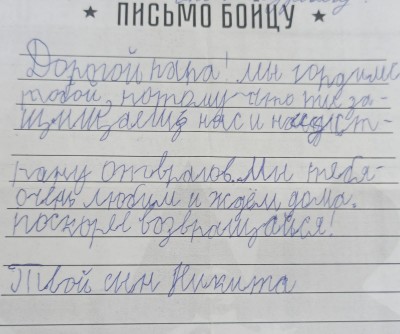 ★ ПИСЬМО БОЙЦУ ★
Дорогой папа! мы гордимся
тобой, потому что ты за-
щищаешь нас и нашу ст-
рану от врагов. Мы тебя
очень любим и ждём дома.
поскорее возвращайся!
Твой сын Никита